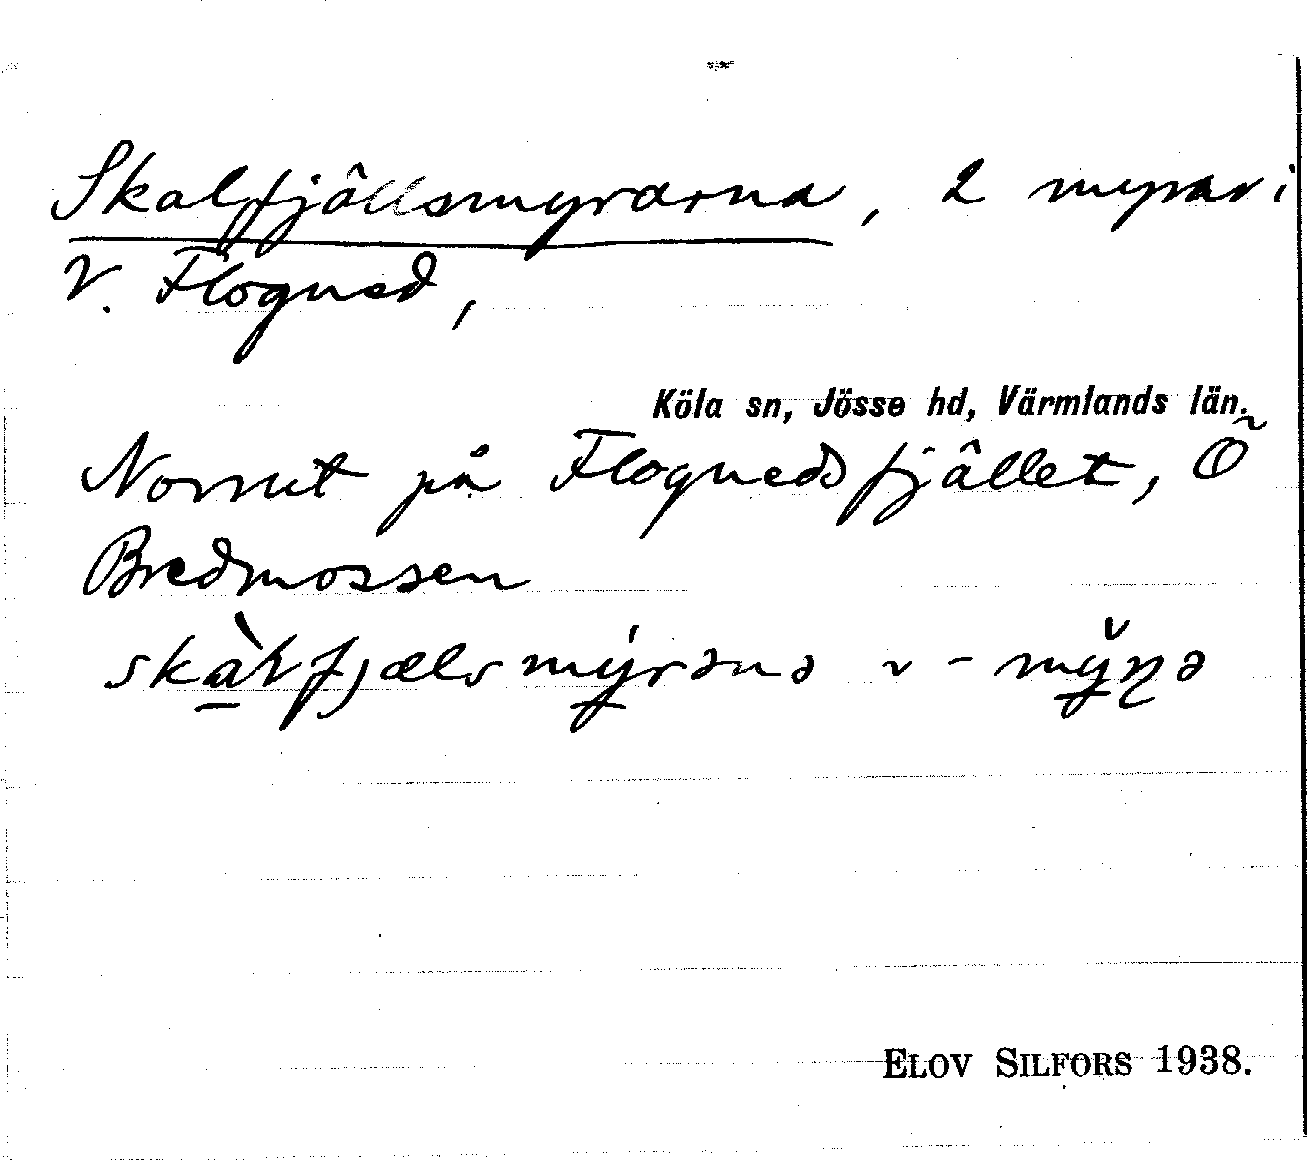 Skalfjällsmyrarna, 2 myrar i
V. Flogned,
Köla sn, Jösse hd, Värmlands län.
Norrut på Flognedsfjället, Ö
Bredmossen
skàɫfjælsmýrəna ~ -my̌ɳa
ELOV SILFORS 1938.